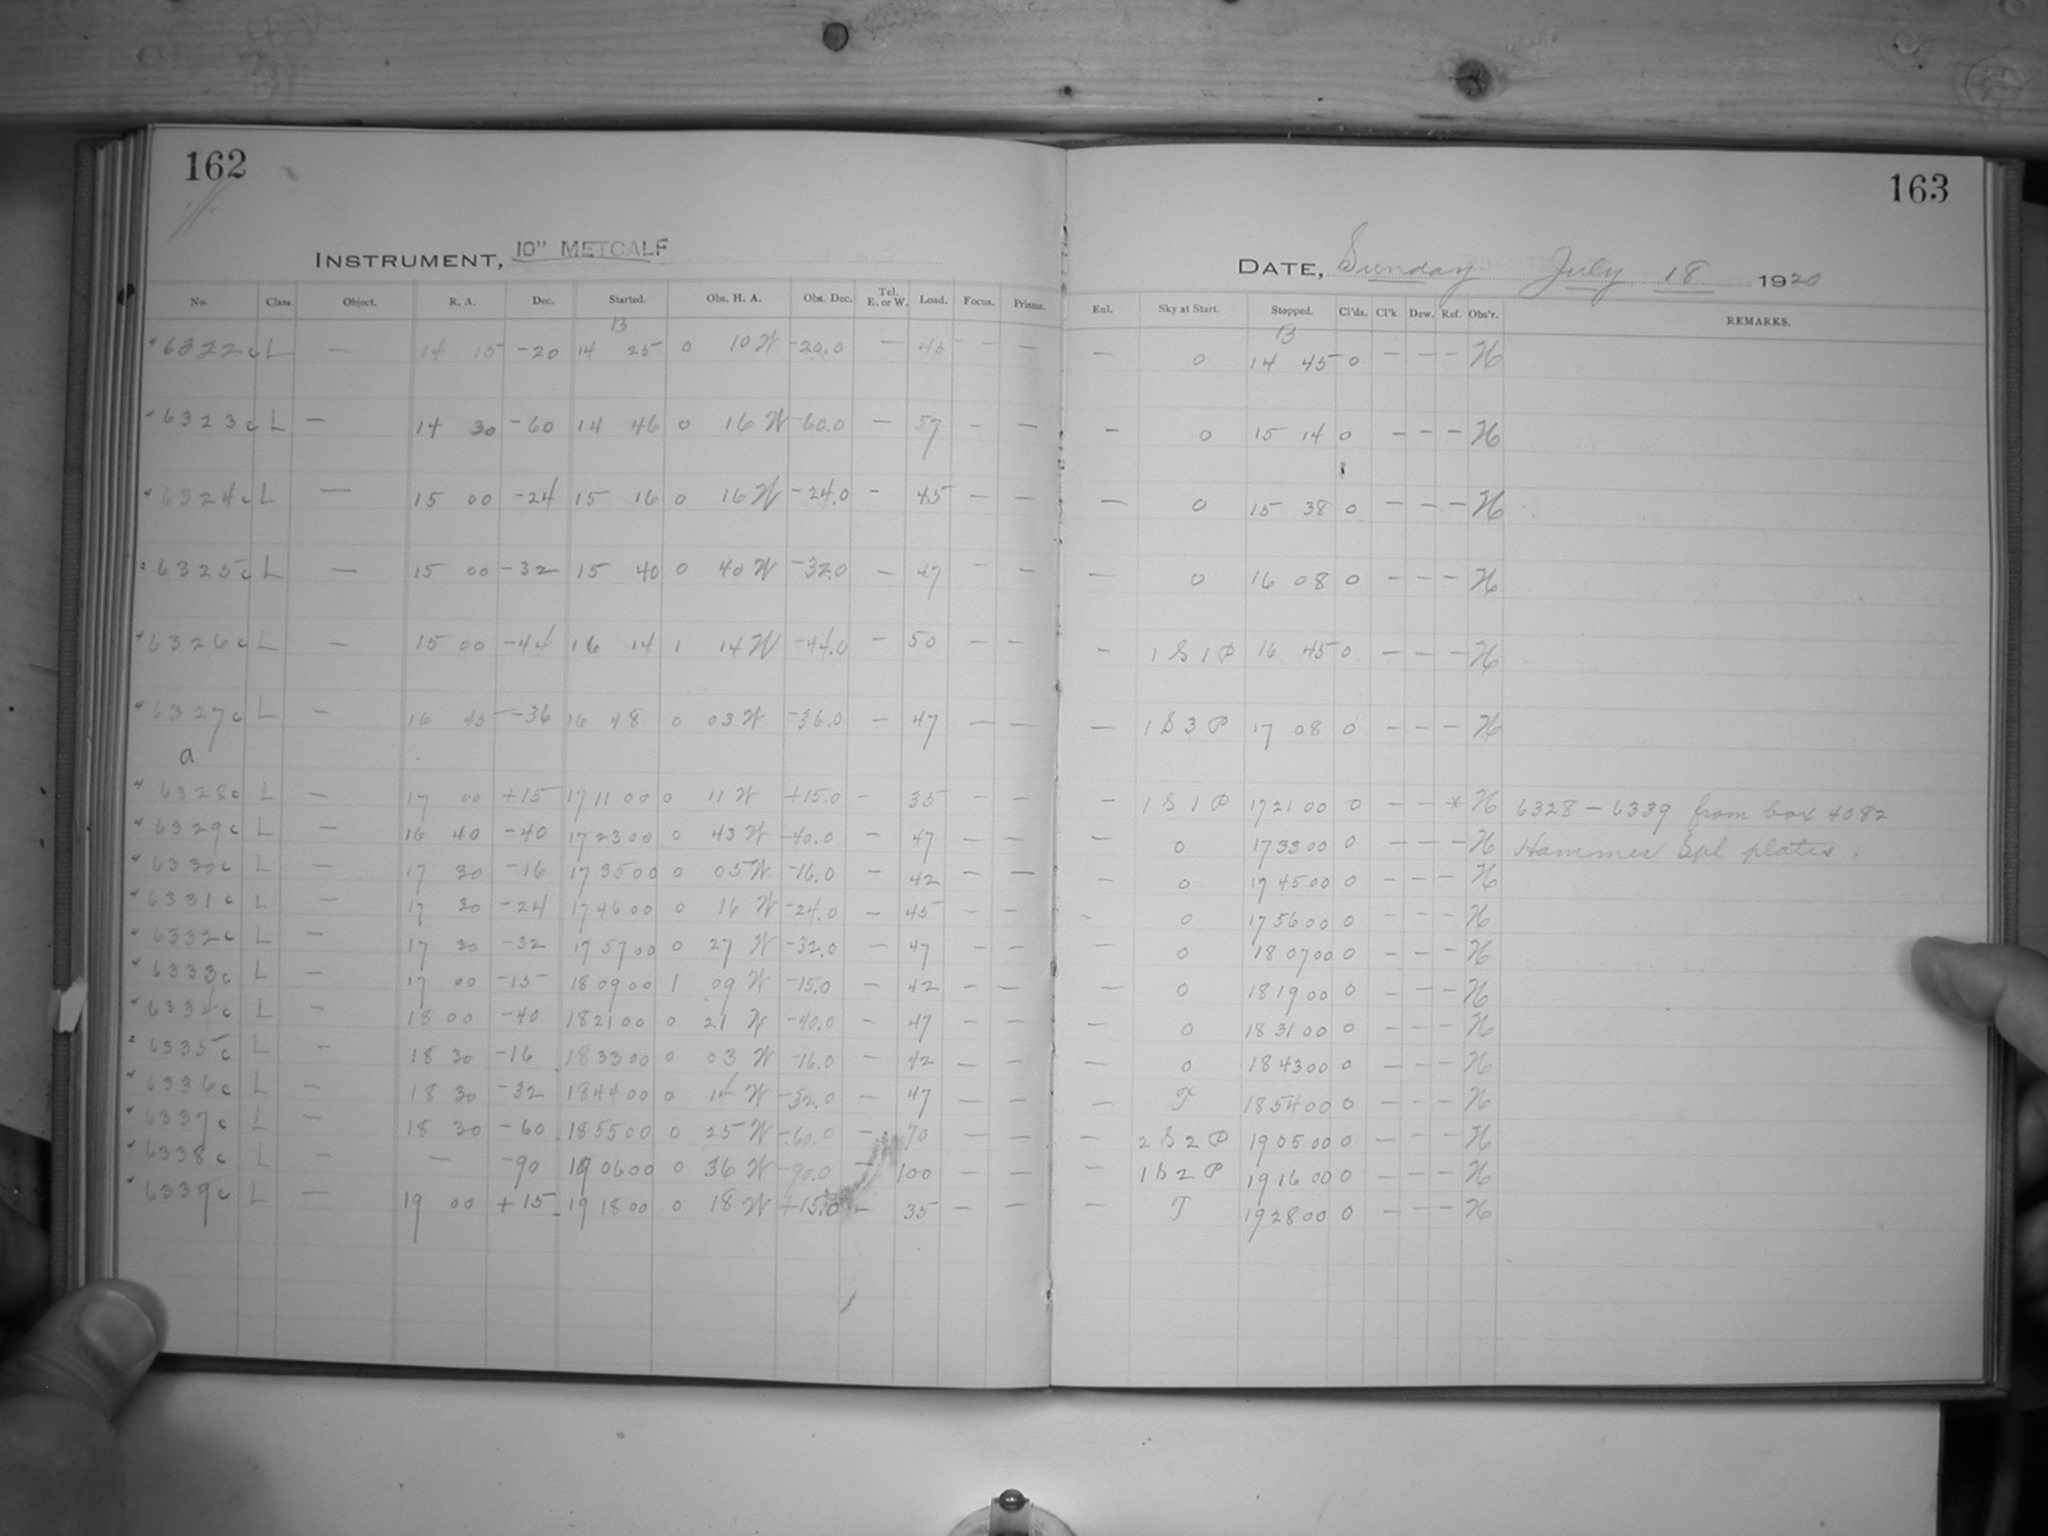 162
163
INSTRUMENT, 10" METCALF
DATE, Sunday July 18 1920
No. Class. Object. R. A. Dec. Started. Obs. H. A. Obs. Dec. Tel. E. or W. Load. Focus. Prisms. Enl. Sky at Start. Stopped. Cl'ds. Cl'k Dew. Ref. Obs'r. REMARKS.
B B
6322c L — 14 15 -20 14 25 0 10 W -20.0 — 45 — — — 0 14 45 0 — — — H
6323c L — 14 30 -60 14 46 0 16 W -60.0 — 57 — — — 0 15 14 0 — — — H
6324c L — 15 00 -24 15 16 0 16 W -24.0 — 45 — — — 0 15 38 0 — — — H
6325c L — 15 00 -32 15 40 0 40 W -32.0 — 47 — — — 0 16 08 0 — — — H
6326c L — 15 00 -44 16 14 1 14 W -44.0 — 50 — — — 1 S 1 P 16 45 0 — — — H
6327c L — 16 45 -36 16 48 0 03 W -36.0 — 47 — — — 1 S 3 P 17 08 0 — — — H
a
6328c L — 17 00 +15 17 11 00 0 11 W +15.0 — 35 — — — 1 S 1 P 17 21 00 0 — — * H 6328 — 6339 from box 4082
6329c L — 16 40 -40 17 23 00 0 43 W -40.0 — 47 — — — 0 17 33 00 0 — — — H Hammer Spl plates.
6330c L — 17 30 -16 17 35 00 0 05 W -16.0 — 42 — — — 0 17 45 00 0 — — — H
6331c L — 17 30 -24 17 46 00 0 16 W -24.0 — 45 — — — 0 17 56 00 0 — — — H
6332c L — 17 30 -32 17 57 00 0 27 W -32.0 — 47 — — — 0 18 07 00 0 — — — H
6333c L — 17 00 -15 18 09 00 1 09 W -15.0 — 42 — — — 0 18 19 00 0 — — — H
6334c L — 18 00 -40 18 21 00 0 21 W -40.0 — 47 — — — 0 18 31 00 0 — — — H
6335c L — 18 30 -16 18 33 00 0 03 W -16.0 — 42 — — — 0 18 43 00 0 — — — H
6336c L — 18 30 -32 18 44 00 0 14 W -32.0 — 47 — — — T 18 54 00 0 — — — H
6337c L — 18 30 -60 18 55 00 0 25 W -60.0 — 70 — — — 2 S 2 P 19 05 00 0 — — — H
6338c L — — -90 19 06 00 0 36 W -90.0 — 100 — — — 1 S 2 P 19 16 00 0 — — — H
6339c L — 19 00 +15 19 18 00 0 18 W +15.0 — 35 — — — T 19 28 00 0 — — — H